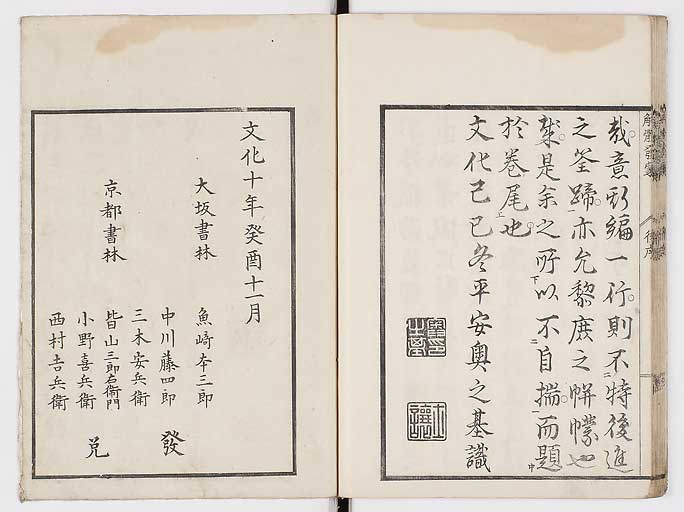 哉意斯編一行則不特後進
之筌蹄亦允黎庶之帡幪也
矣是余之所以不自揣而題
於巻尾也
文化己巳冬平安奥之基識
後序
文化十年癸酉十一月
大坂書林 魚崎本三郎
中川藤四郎
三木安兵衛
京都書林 皆山三郎右衛門
小野喜兵衛
西村吉兵衛
發
兌